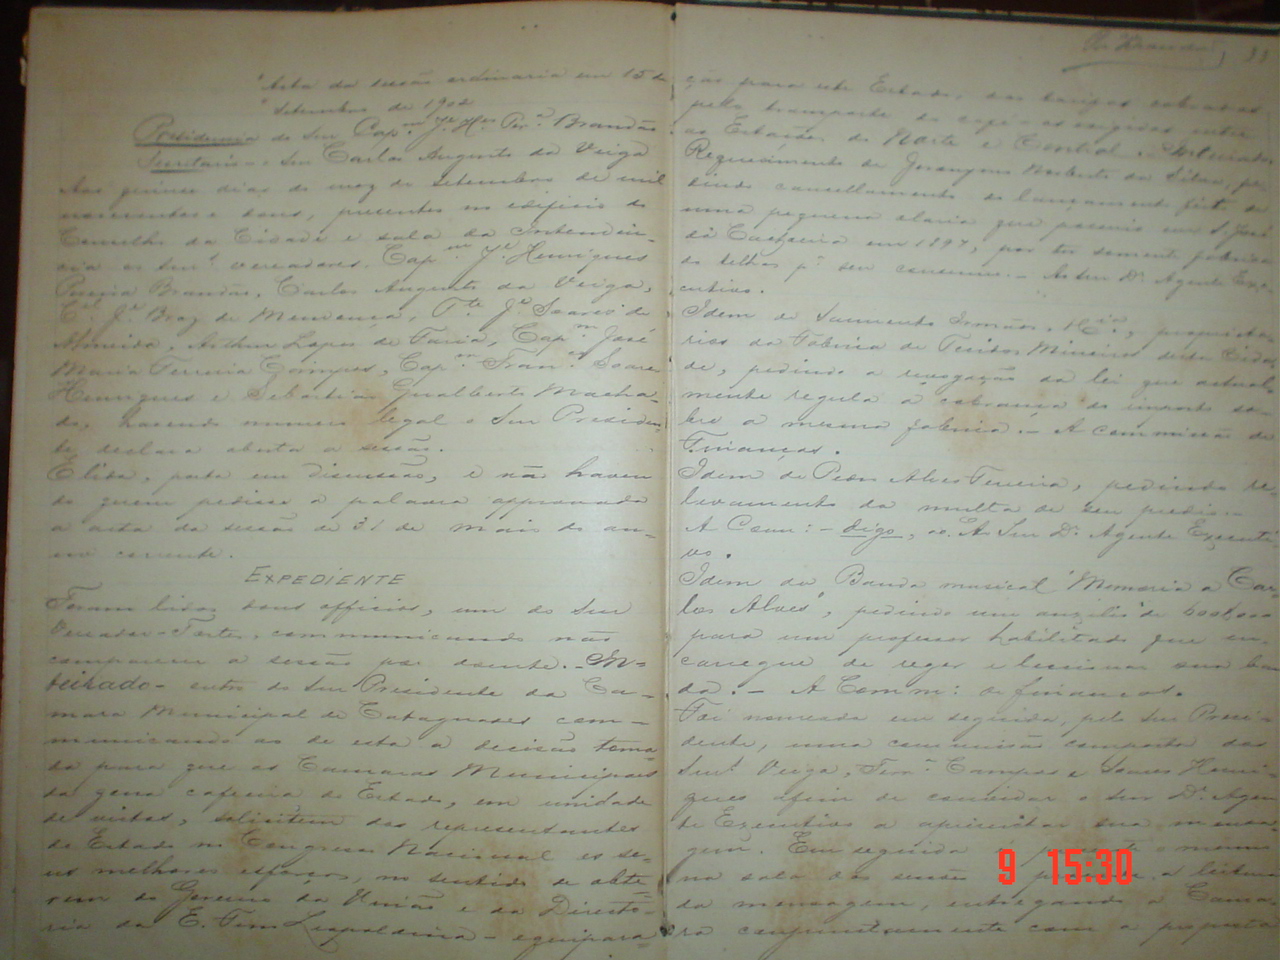 Acta da sessão ordinaria em 15 de
Setembro de 1902
Presidencia do Snr Cap.m J.e H.es Per.a Brandão
Secretario o Snr Carlos Augusto da Veiga
Aos quinse dias do mez de Setembro de mil
novecentos e dous, presentes no edificio do
Conselho da Cidade e sala da Intenden-
cia os Snr.s vereadores Cap.m J.e Henriques
Pereira Brandão, Carlos Augusto da Veiga,
C.el J.e Braz de Mendonça, T.te J.e Soares de
Almeida, Arthur Lopes de Faria, Cap.m José
Maria Ferreira Campos, Cap.m Fran.co Soares
Henriques e Sebastião Gualberto Macha-
do, havendo numero legal o Snr Presiden-
te declara aberta a sessão.
É lida, posta em discussão, e não haven
do quem pedisse a palavra approvada
a acta da sessão de 31 de maio do an-
no corrente.
EXPEDIENTE
Foram lidos dous officios, um do Snr
Vereador Fortes, communicando não
comparecer a sessão por doente. - In-
teirado - outro do Snr Presidente da Ca-
mara Municipal de Cataguases com-
municando ao de esta a decisão toma
da para que as Camaras Municipaes
da zona cafeeira do Estado, em unidade
de vistas, solicitem dos representantes
do Estado no Congresso Nacional os se-
us melhores esforços, no sentido de obte-
rem do Governo da União e da Directo-
ria da E. Ferro Leopoldina - equipara-
33
ção para este Estado, das tarifas cobradas
pelo transporte do café - as exigidas entre
as Estações do Norte e Central. - Inteirado
Requerimento de Norberto da Silva, pe-
dindo cancellamento do lançamento feito de
uma pequena olaria que possuia em S. José
da Cachoeira em 1897, por ter somente fabrica
do telhas p.a seu consumo. - Ao Snr D.r Agente Exe-
cutivo.
Idem de Sarmento Irmãos & C.ia, proprieta-
rios da Fabrica de Tecidos Mineiros desta Cida-
de, pedindo a revogação da lei que actual-
mente regula a cobrança do imposto so-
bre a mesma fabrica. - A commissão de
Finanças.
Idem de Pedro Alves Ferreira, pedindo re-
levamento da multa de seu predio.
A Comm: - digo, ao Snr D.r Agente Executi-
vo.
Idem da Banda musical "Memoria a Car-
los Alves", pedindo um auxilio de 600$000
para um professor habilitado que en-
carregue de reger e leccionar sua ban
da. - A Comm: de finanças.
Foi nomeada em seguida, pelo Snr Presi-
dente, uma commissão composta dos
Snr.s Veiga, Ferr.a Campos e Soares Henri-
ques afim de convidar o Snr D.r Agen
te Executivo a apresentar sua mensa-
gem. Em seguida é o mesmo
na sala das sessões a leitura
da mensagem, entregando a Cama-
ra conjunctamente com a proposta
9 15:30